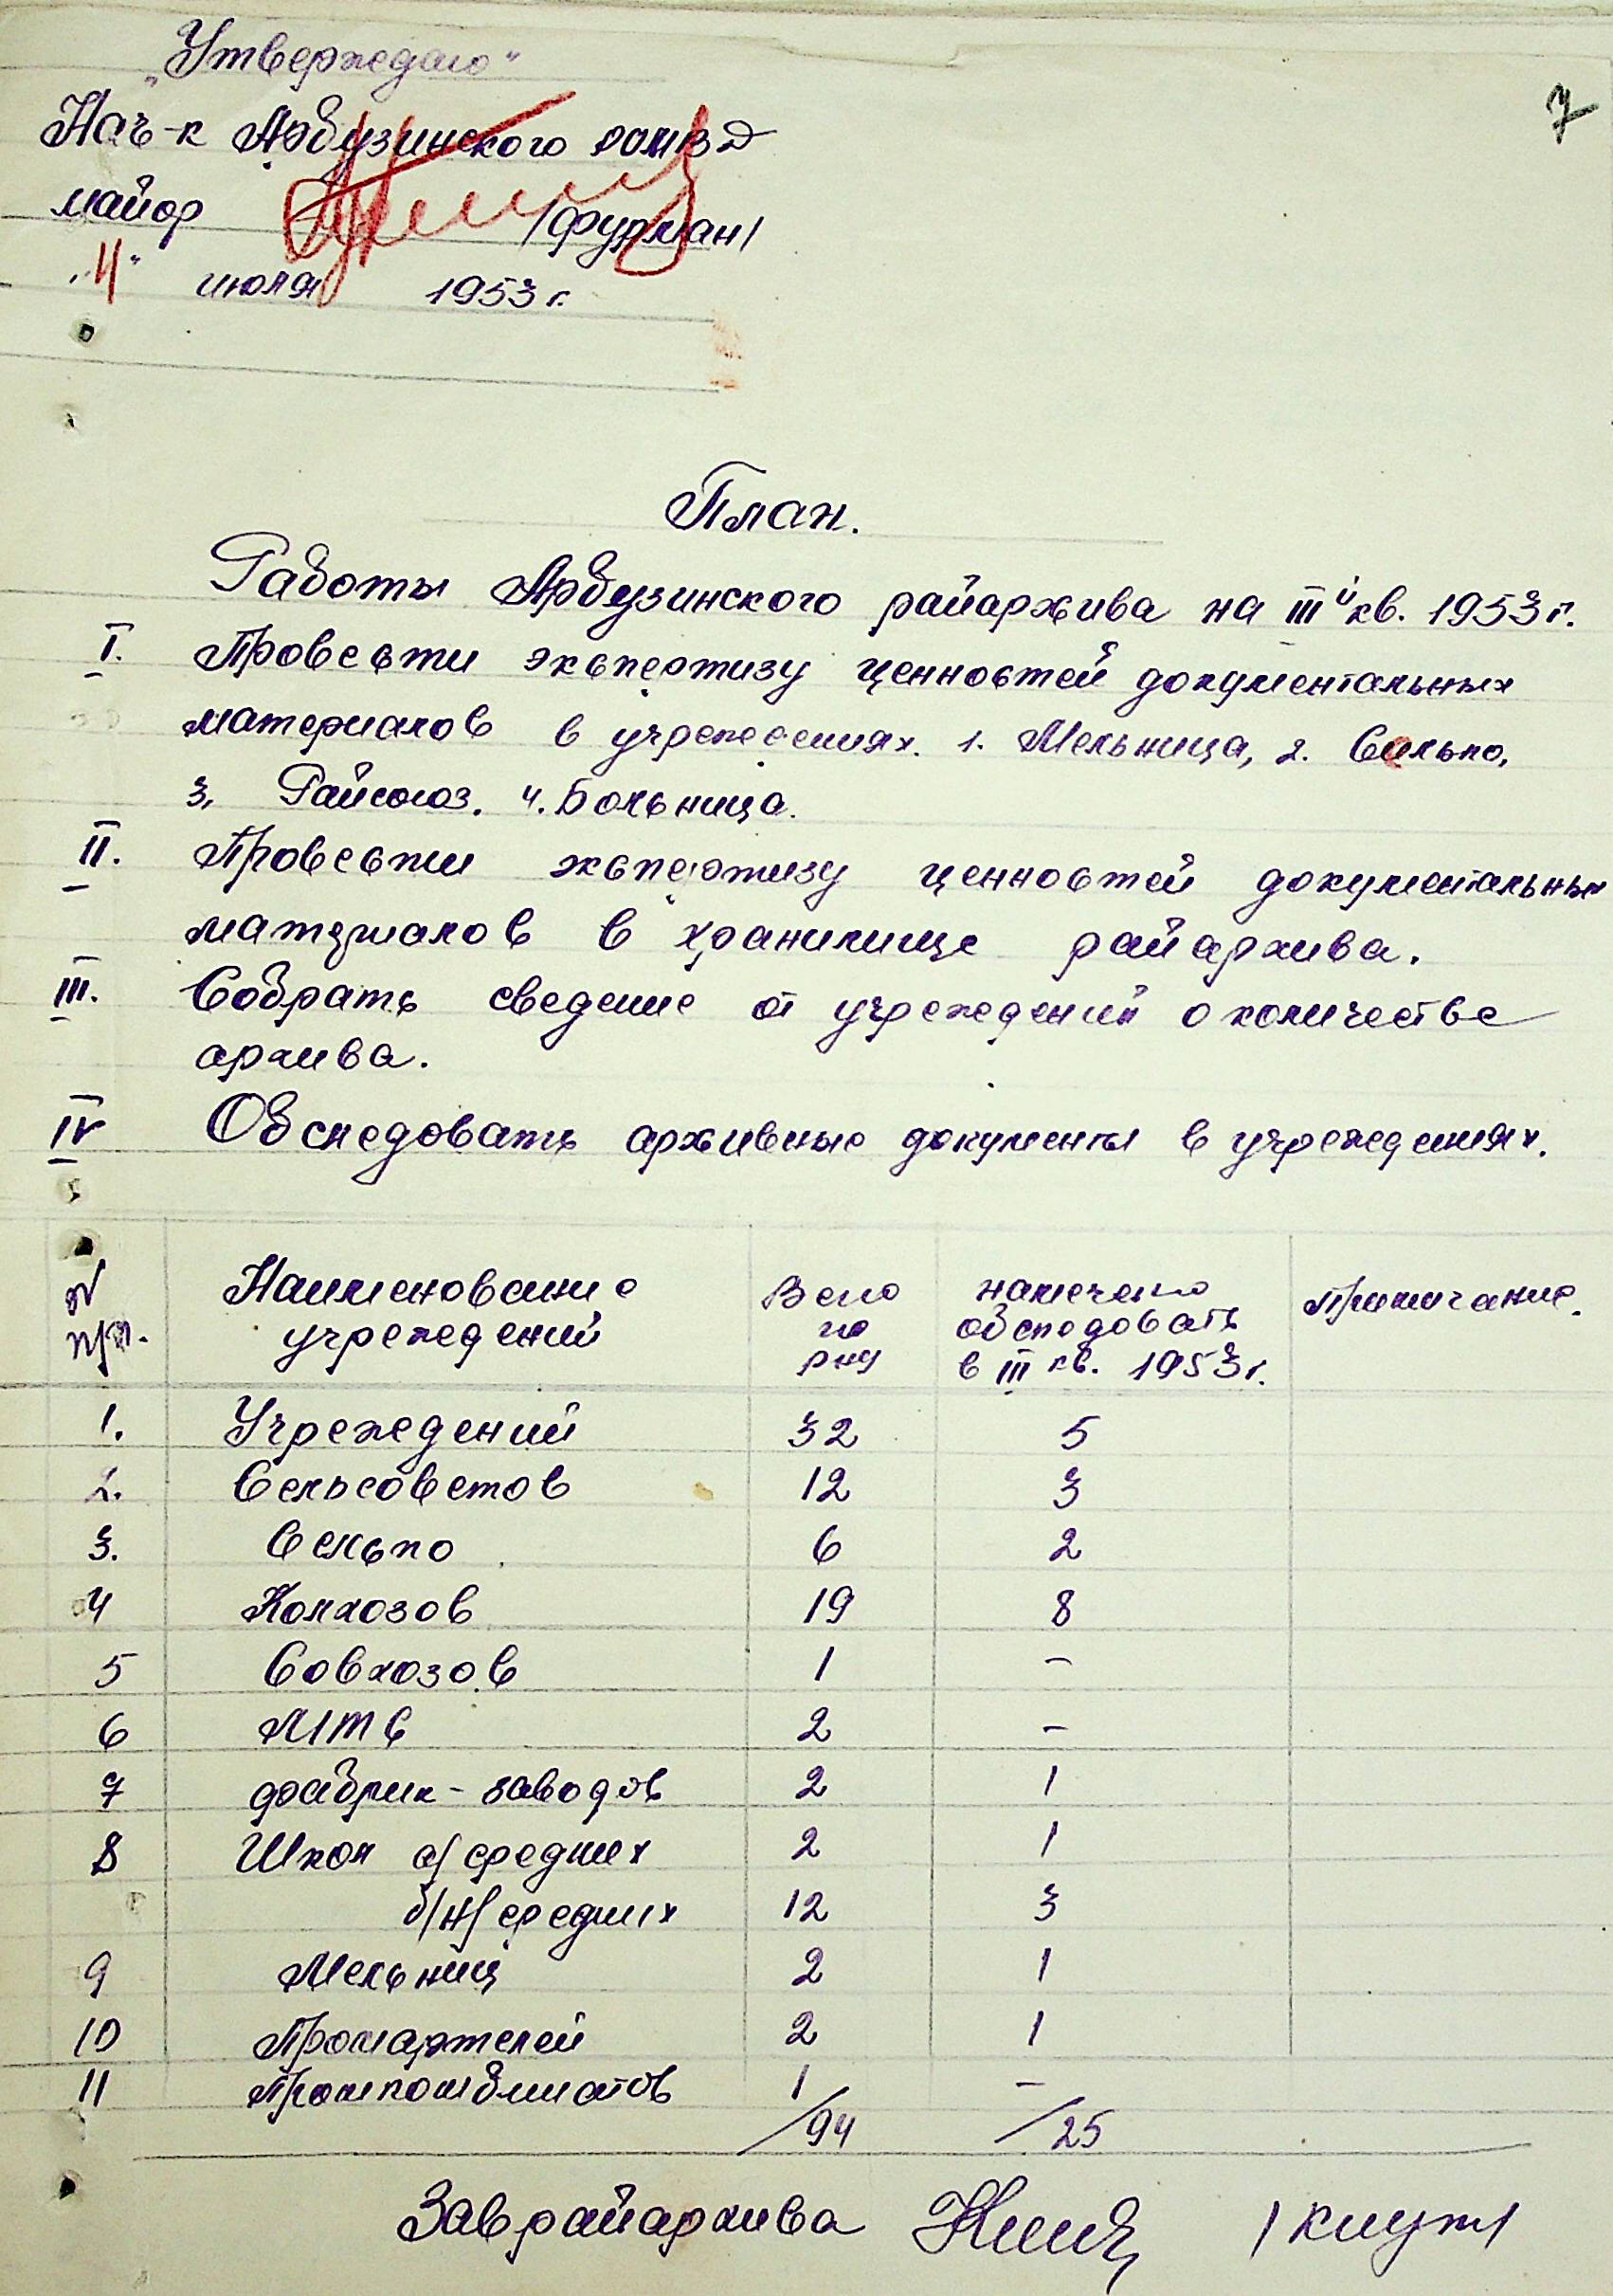 "Утверждаю"
7
Нач-к Арбузинского РОМВД
майор /Фурман/
"4" июля 1953 г.
План.
Работы Арбузинского райархива на III й кв. 1953 г.
I. Провести экспертизу ценностей документальных
материалов в учреждениях. 1. Мельница, 2. Сельпо,
3. Райсоюз. 4. Больница.
II. Провести экспертизу ценностей документальных
материалов в хранилище райархива.
III. Собрать сведение от учреждений о количестве
архива.
IV Обследовать архивные документы в учреждениях.
№ п/п. Наименование учреждений Всего по р-ну намечено обследовать в III кв. 1953 г. Примичание.
1. Учреждений 32 5
2. Сельсоветов 12 3
3. Сельпо 6 2
4 Колхозов 19 8
5 Совхозов 1 –
6 МТС 2 –
7 фабрик-заводов 2 1
8 Школ а/ средних 2 1
б/ н/средних 12 3
9 Мельниц 2 1
10 Промартелей 2 1
11 Промкомбинатов 1 –
94 25
Зав райархива /Кнут/